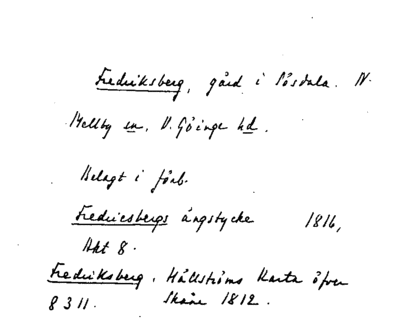 Fredriksberg, gård i Sösdala. N.
Mellby sn, V. Göinge hd.
Belagt i förb.
Fredricsbergs ängstycke 1816,
Akt 8.
Fredriksberg. Hällströms Karta öfver
8311. Skåne 1812.